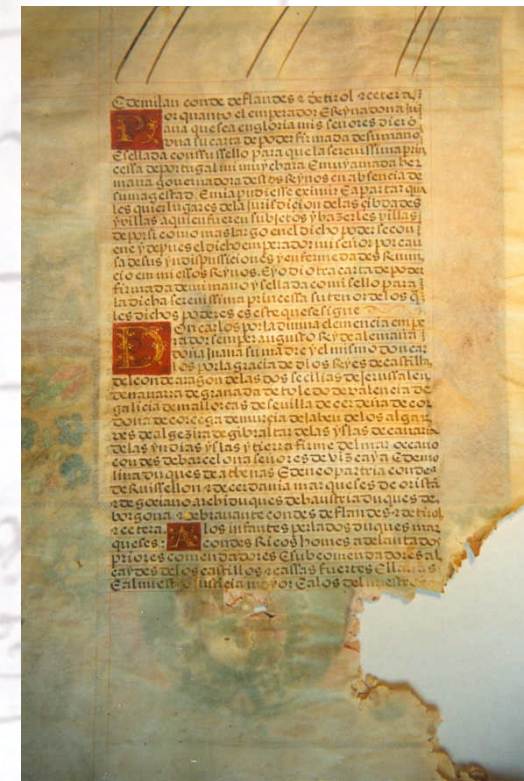 E de milan conde de flandes ⁊ de tirol ⁊ cetera
Por quanto el emperador E Reyna doña ju
ana que sea en gloria mis señores dierõ
vna su carta de poder firmada de su mano
E sellada con su sello para que la serenissima prin
cessa de portugal mi muy chara E muy amada her
mana gouernadora destos Reynos en absencia de
su magestad E mia pudiesse eximir E apartar qua
les quier lugares de la jurisdicion de las cibdades
y villas a quien fueren subjetos y hazerles villas
de por si como mas largo en el dicho poder se conti
ene y depues el dicho emperador mi señor por cau
sa de sus yndispusiciones y enfermedades Renun
cio em mi essos Reynos. E yo di otra carta de poder
firmada de mi mano y sellada com i sello para
la dicha serenissima princessa su tenor de los q̃
les dichos poderes es este que se sigue
Don carlos por la diuina clemencia empe
rador semper augusto Rey de alemaña
doña juana su madre y el mismo don car
los por la gracia de dios Reyes de castilla,
de leon de aragon de las dos secilias de jerusalen,
de nauarra de granada de toledo de valencia de
galicia de mallorcas de seuilla de cerdeña de cor
doua de corcega de murcia de jahen de los algar
ues de algezira de gibraltar de las yslas de canaria
de las yndias yslas y tierra firme del mar oceano
condes de barcelona señores de vizcaya E de mo
lina duques de athenas E de neopatria condes
de Ruissellon ⁊ de cerdania marqueses de oristã
⁊ de gociano archiduques de haustria duques de
borgoña ⁊ de brauante condes de flandes ⁊ de tirol
⁊ cetera. A los infantes perlados duques mar
queses: condes Ricos homes adelantados
priores comendadores E subcomendadores al
caydes de los castillos ⁊ cassas fuertes E llanas
E al nuestro justicia mayor E a los del nuestro